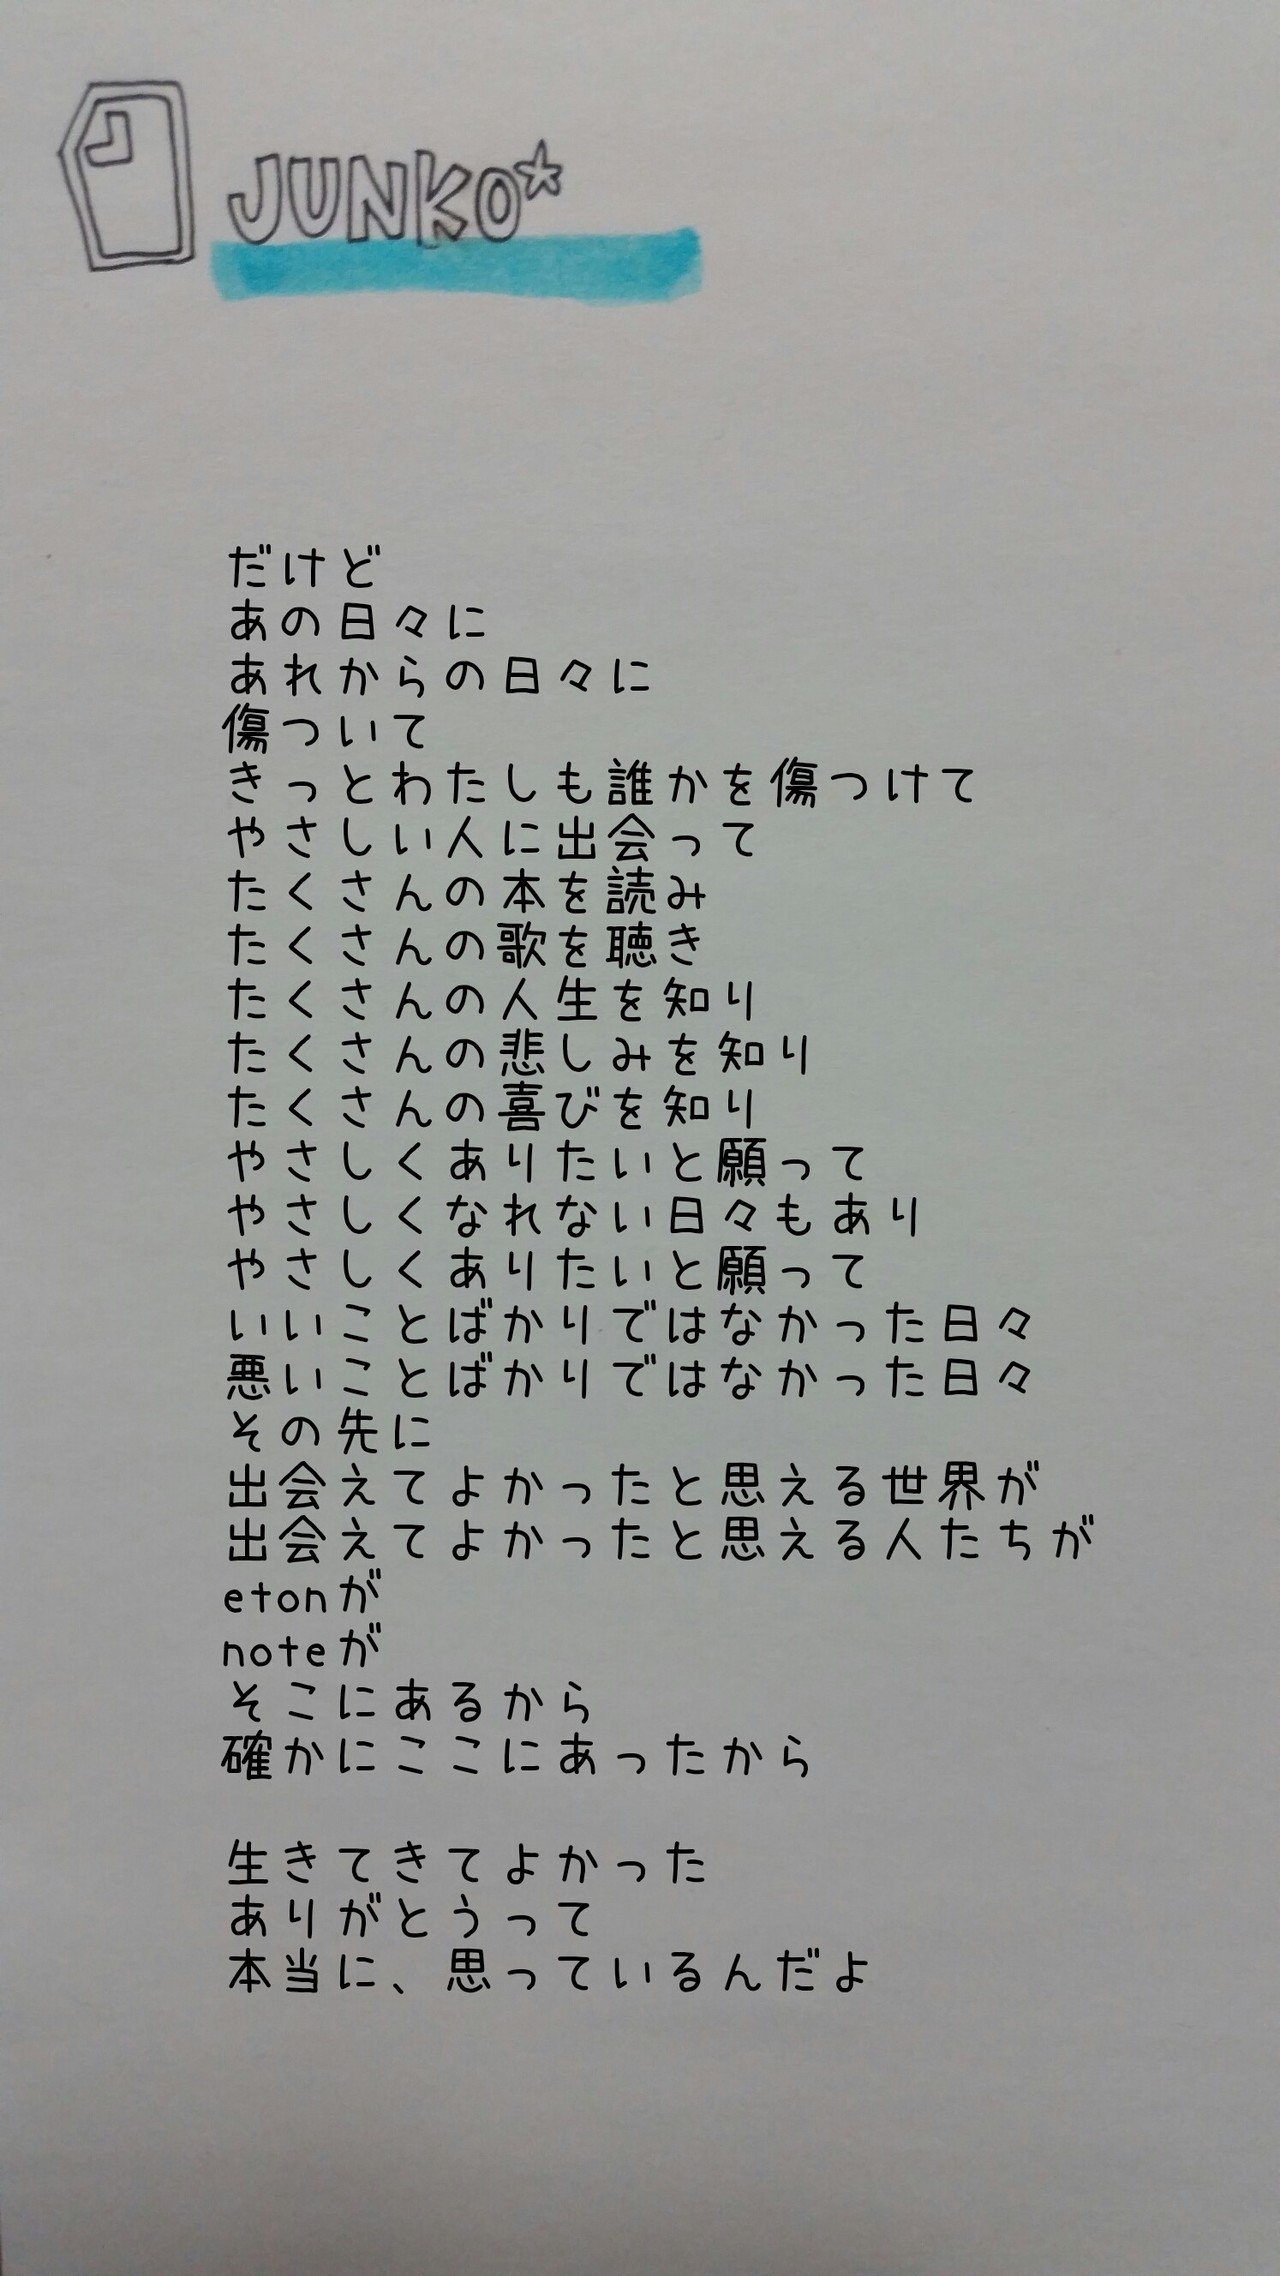 JUNKO*
だけど
あの日々に
あれからの日々に
傷ついて
きっとわたしも誰かを傷つけて
やさしい人に出会って
たくさんの本を読み
たくさんの歌を聴き
たくさんの人生を知り
たくさんの悲しみを知り
たくさんの喜びを知り
やさしくありたいと願って
やさしくなれない日々もあり
やさしくありたいと願って
いいことばかりではなかった日々
悪いことばかりではなかった日々
その先に
出会えてよかったと思える世界が
出会えてよかったと思える人たちが
etonが
noteが
そこにあるから
確かにここにあったから
生きてきてよかった
ありがとうって
本当に、思っているんだよ